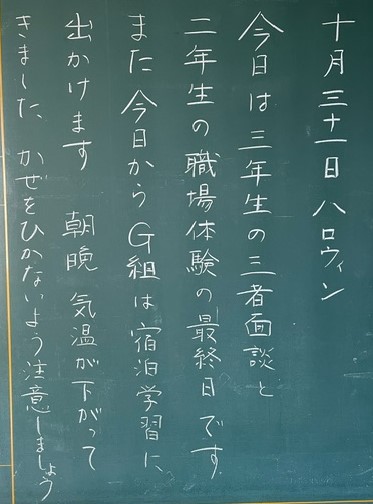 十月三十一日 ハロウィン
今日は三年生の三者面談と
二年生の職場体験の最終日です
また今日からG組は宿泊学習に
出かけます 朝晩気温が下がって
きました、かぜをひかないよう注意しましょう